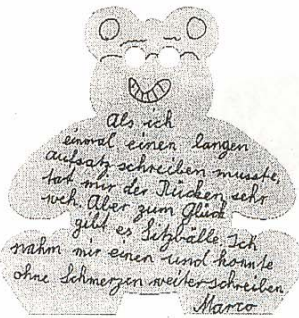 Als ich
einmal einen langen
Aufsatz schreiben musste,
tat mir der Rücken sehr
weh. Aber zum Glück
gibt es Sitzbälle. Ich
nahm mir einen und konnte
ohne Schmerzen weiterschreiben
Marco